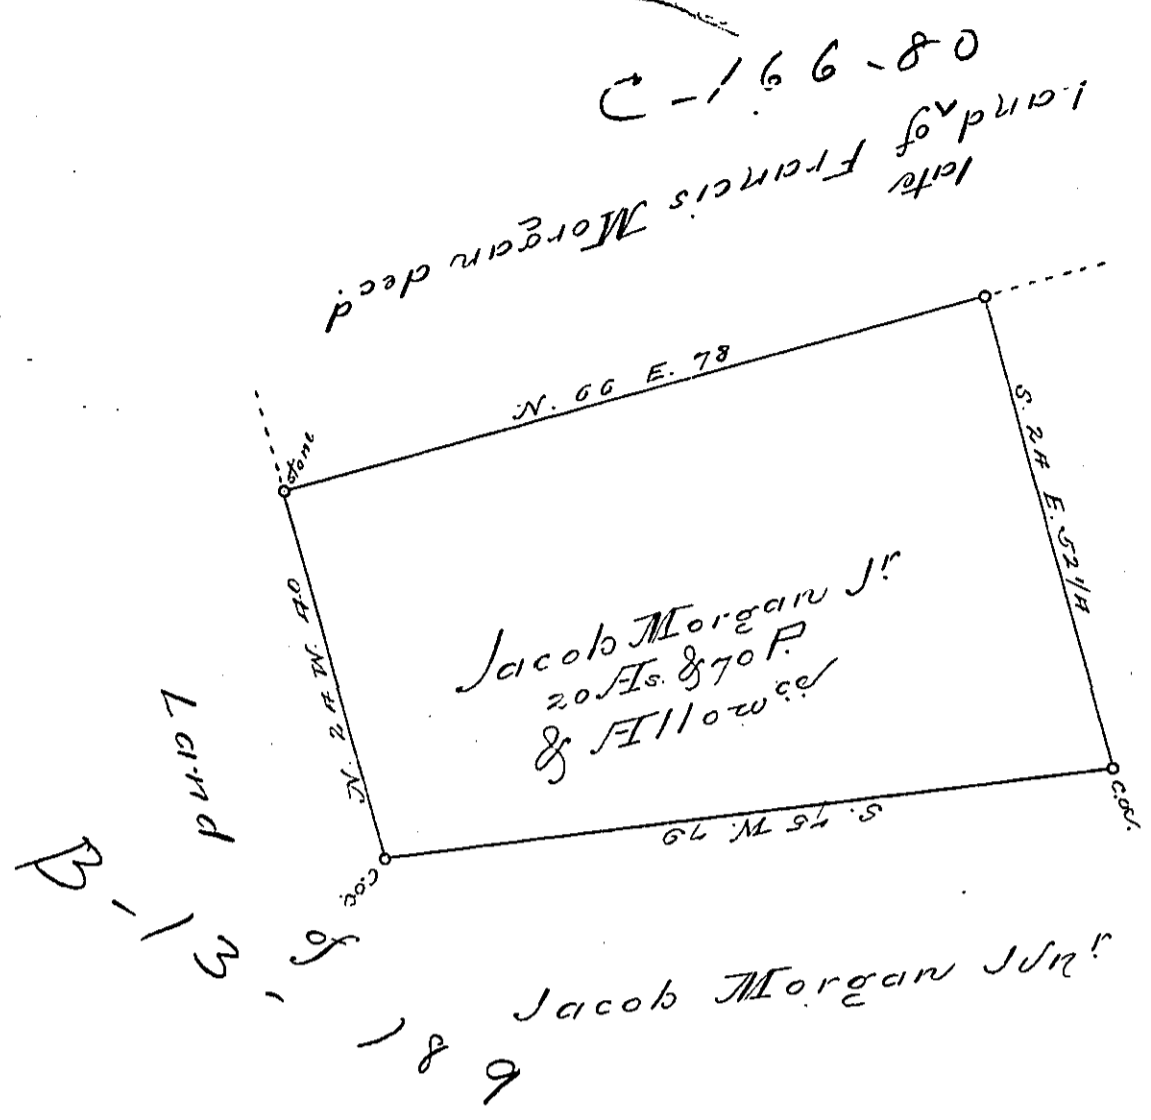 C-166-80
Land of
late Francis Morgan dec.d
N. 66 E. 78
stone
S. 24 E. 52 1/4
N. 24 W. 40
Jacob Morgan Jr
20 As. & 70 P.
& Allowce
S. 75 W. 79
C.oc.
C.oc.
Land of Jacob Morgan Junr
B-13-189